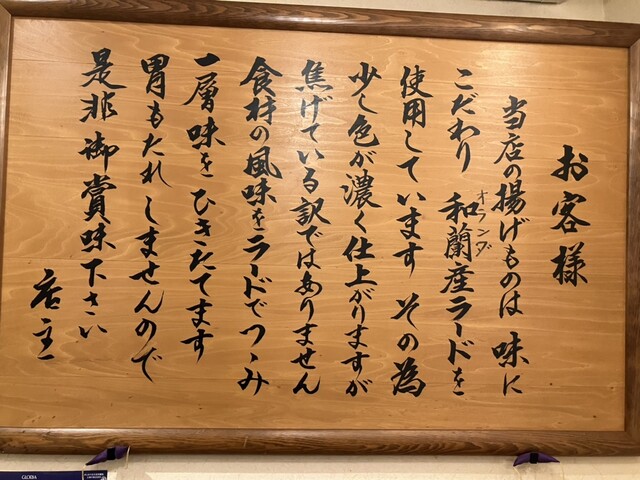 お客様
当店の揚げものは 味に
こだわり 和蘭産ラードを
オランダ
使用しています その為
少し色が濃く仕上がりますが
焦げている訳ではありません
食材の風味をラードでつゝみ
一層味をひきたてます
胃もたれしませんので
是非御賞味下さい
店主
CALBDA